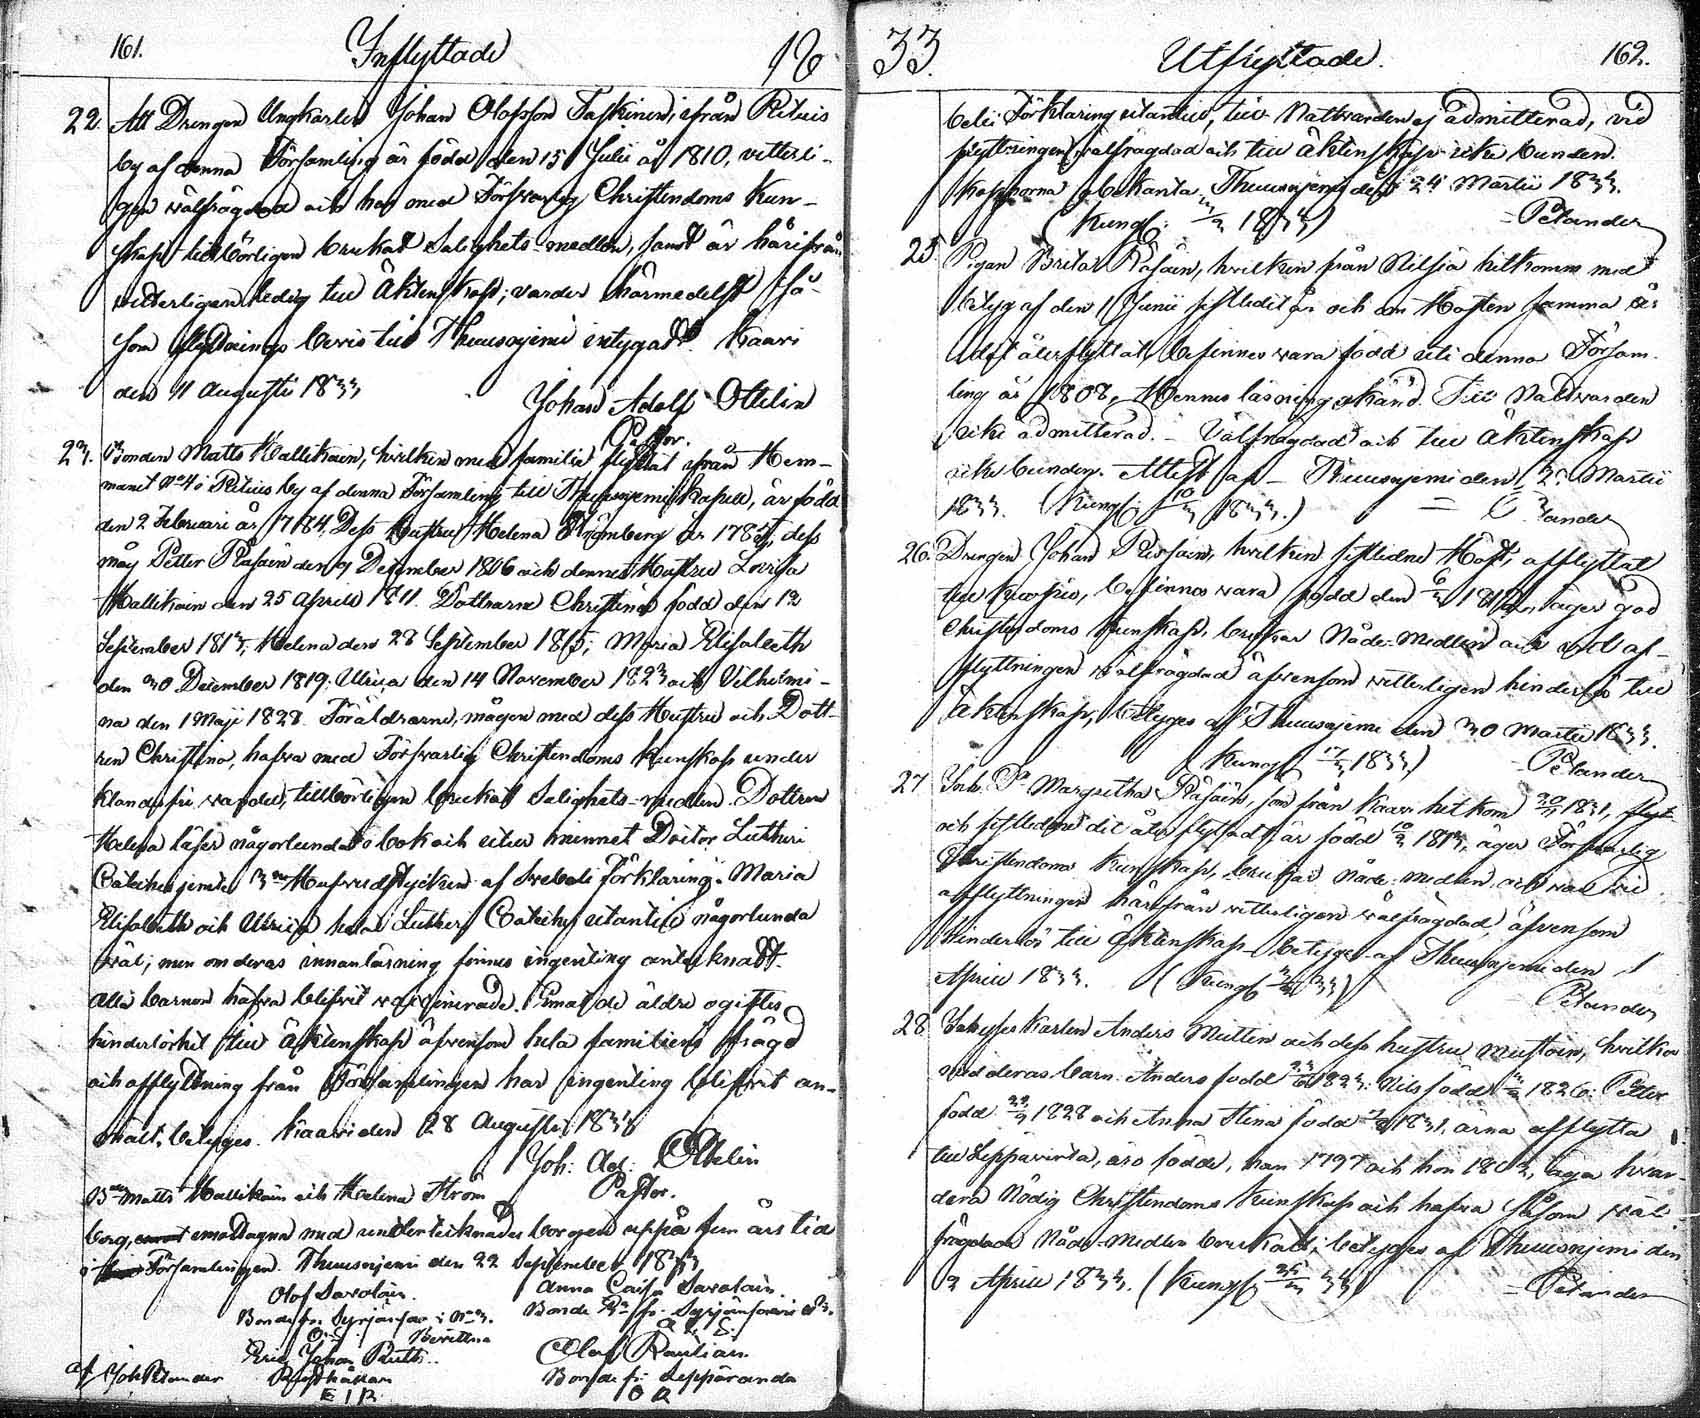 161. Inflyttade 16
22. Att Drengen Ungkarlen Johan Olofsson Taskinen, ifrån Rituis
by af denna Församling är född den 15 Julii år 1810, vitterli-
gen välfrägdad och har med Försvarlig Christendoms Kun-
skap tillbörligen brukat Salighets-medlen, samt är härifrån
vitterligen ledig till Äktenskap; varder härmedelst så-
som flyttnings bevis till Thuusnjemi intygadt. Kaavi
den 11 Augusti 1833
Johan Adolf Ottelin
Pastor.
23. Bonden Matts Hallikain, hvilken med familie flyttat ifrån Hem-
manet No 4 i Rituis by af denna Församling till Thuusnjemi Kapell, är född
den 2 Februari år 1784, Dess Hustru Helena Strömberg år 1785, dess
måg Petter Räsäin den 9 December 1806 och dennes Hustru Lovisa
Hallikain den 25 Aprill 1811. Döttrarne Christina född den 12
September 1813; Helena den 28 September 1815; Maria Elisabeth
den 30 December 1819; Ulrica den 14 November 1823 och Vilhelmi-
na den 1 Maji 1828. Föräldrarne, mågen med dess Hustru och Dott-
ren Christina, hafva med Försvarlig Christendoms Kunskap under
klanderfri vandel, tillbörligen brukat Salighets-medlen. Dottren
Helena läser någorlunda i bok och utur minnet Doctor Lutheri
Cateches jemte 3ne Hufvudstycken af Svebelii Förklaring. Maria
Elisabeth och Ulrica hela Luthers Cateches utantill någorlunda
väl; men om deras innanläsning finnes ingenting antecknadt.
Alla barnen hafva blifvit vaccinerade. Emot de äldre ogiftes
hinderlöshet till Äktenskap äfvensom hela familiens frägd
och afflyttning från Församlingen har ingenting blifvit an-
mält, betyges. Kaavi den 28 Augusti 1833
Joh: Ad: Ottelin
Pastor.
Bden Matts Hallikain och Helena Ström
berg, emottagne med undertecknades borgen uppå fem års tid
i Församlingen. Thuusnjemi den 22 September 1833
Olof Savolain. Anna Caisa Savolain.
Bonde fr. Syrjänsaari No 3. Bonde
Eric Johan Ruuth Olof Räutiain
af Joh Petander Bonde fr. Seppäranda
E I R O R
33. Utflyttade. 162.
belii Förklaring utantill, till Nattvarden ej admitterad, vid
flyttningen välfrägdad och till Äktenskap icke bunden.
Kopporna bekanta. Thuusnjemi den 24 Martii 1833.
(Kungl: 1833) Petander
25. Pigan Brita Räsäin, hvilken från Nilsiä hitkomm med
betyg af den 1 Junii sistledit år och om Hösten samma år
dit återflyttat, befinnes vara född uti denna Försam-
ling år 1808, Hennes läsning okänd. Till Nattvarden
icke admitterad. - Välfrägdad och till Äktenskap
icke bunden. Attest af - Thuusnjemi den 2 Martii
1833. (Kungl: 1833.) Petander
26. Drengen Johan Räsäin, hvilken sistlidne Höst, afflyttat
till Kuopio, befinnes vara född den 181, äger god
Christendoms Kunskap, brukar Nåde-Medlen och vid af-
flyttningen välfrägdad äfvensom vitterligen hinderlös till
Äktenskap, betyges af Thuusnjemi den 30 Martii 1833.
(Kungl 1833) Petander
27. Inh. Margretha Räsäin, som från Kaavi hitkom 1831,
och sistledne dit återflyttadt är född 1813, äger Försvarlig
Christendoms Kunskap, brukar Nåde-medlen och var vid
afflyttningen härifrån vitterligen välfrägdad, äfvensom
hinderlös till Äktenskap betyges af Thuusnjemi den 1
Aprill 1833. (Kungl 33) Petander
28. Inhyses Karlen Anders Miettin och dess hustru, hvilka
med deras barn: Anders född 1823; Nils född 1826; Petter
född 1828 och Anna Stina född 1831, ärna afflytta
till Leppävirta, äro födde, han 1797 och hon 1803, äga hvar-
dera Nödig Christendoms Kunskap och hafva såsom väl
frägdade Nåde-Medlen brukadt; betyges af Thuusnjemi den
2 Aprill 1833. (Kungl 33) Petander